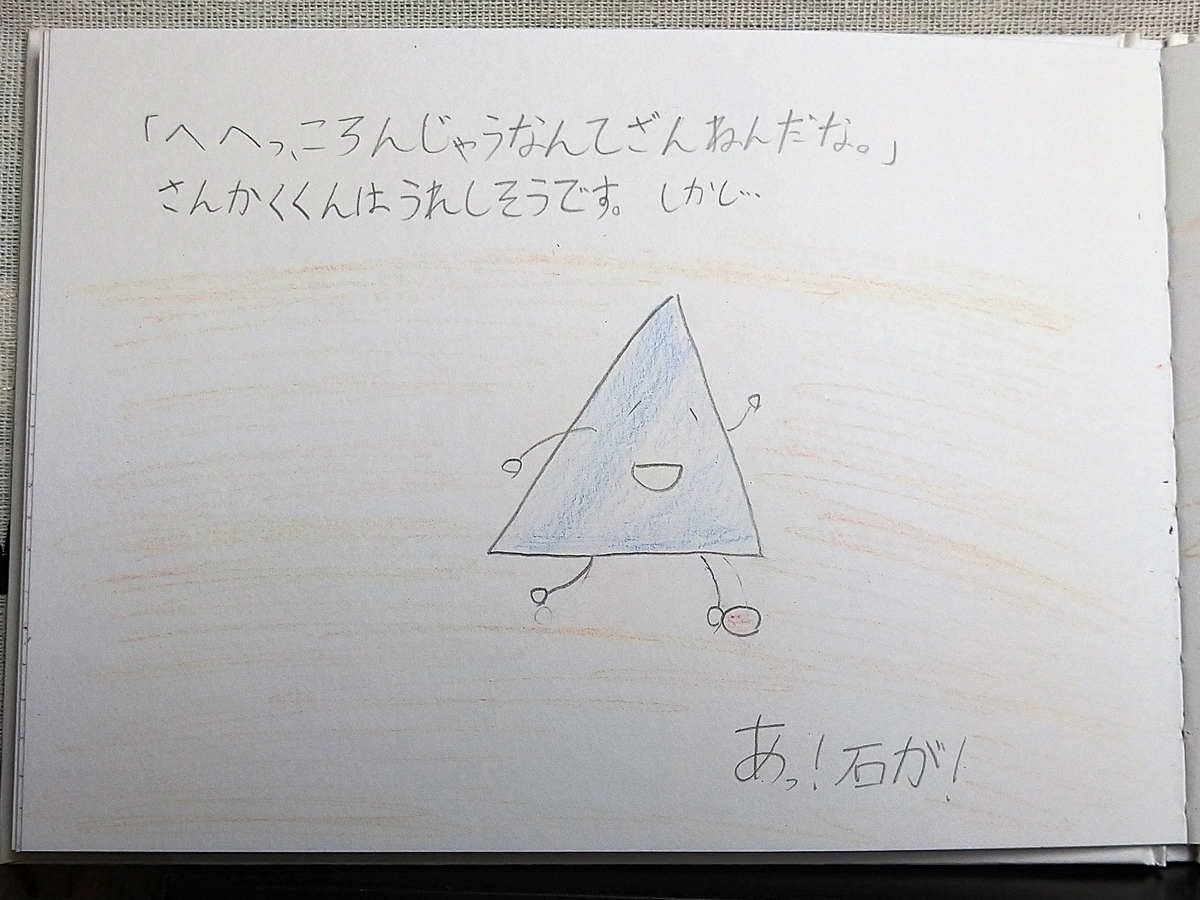 「へへっ、ころんじゃうなんてざんねんだな。」
さんかくくんはうれしそうです。しかし…
あっ!石が!